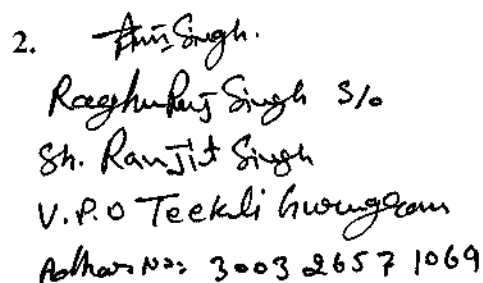 2. Singh.
Singh S/o
Sh. Ranjit Singh
V.P.O Teekli Gurugram
Adhar No: 3003 2657 1069